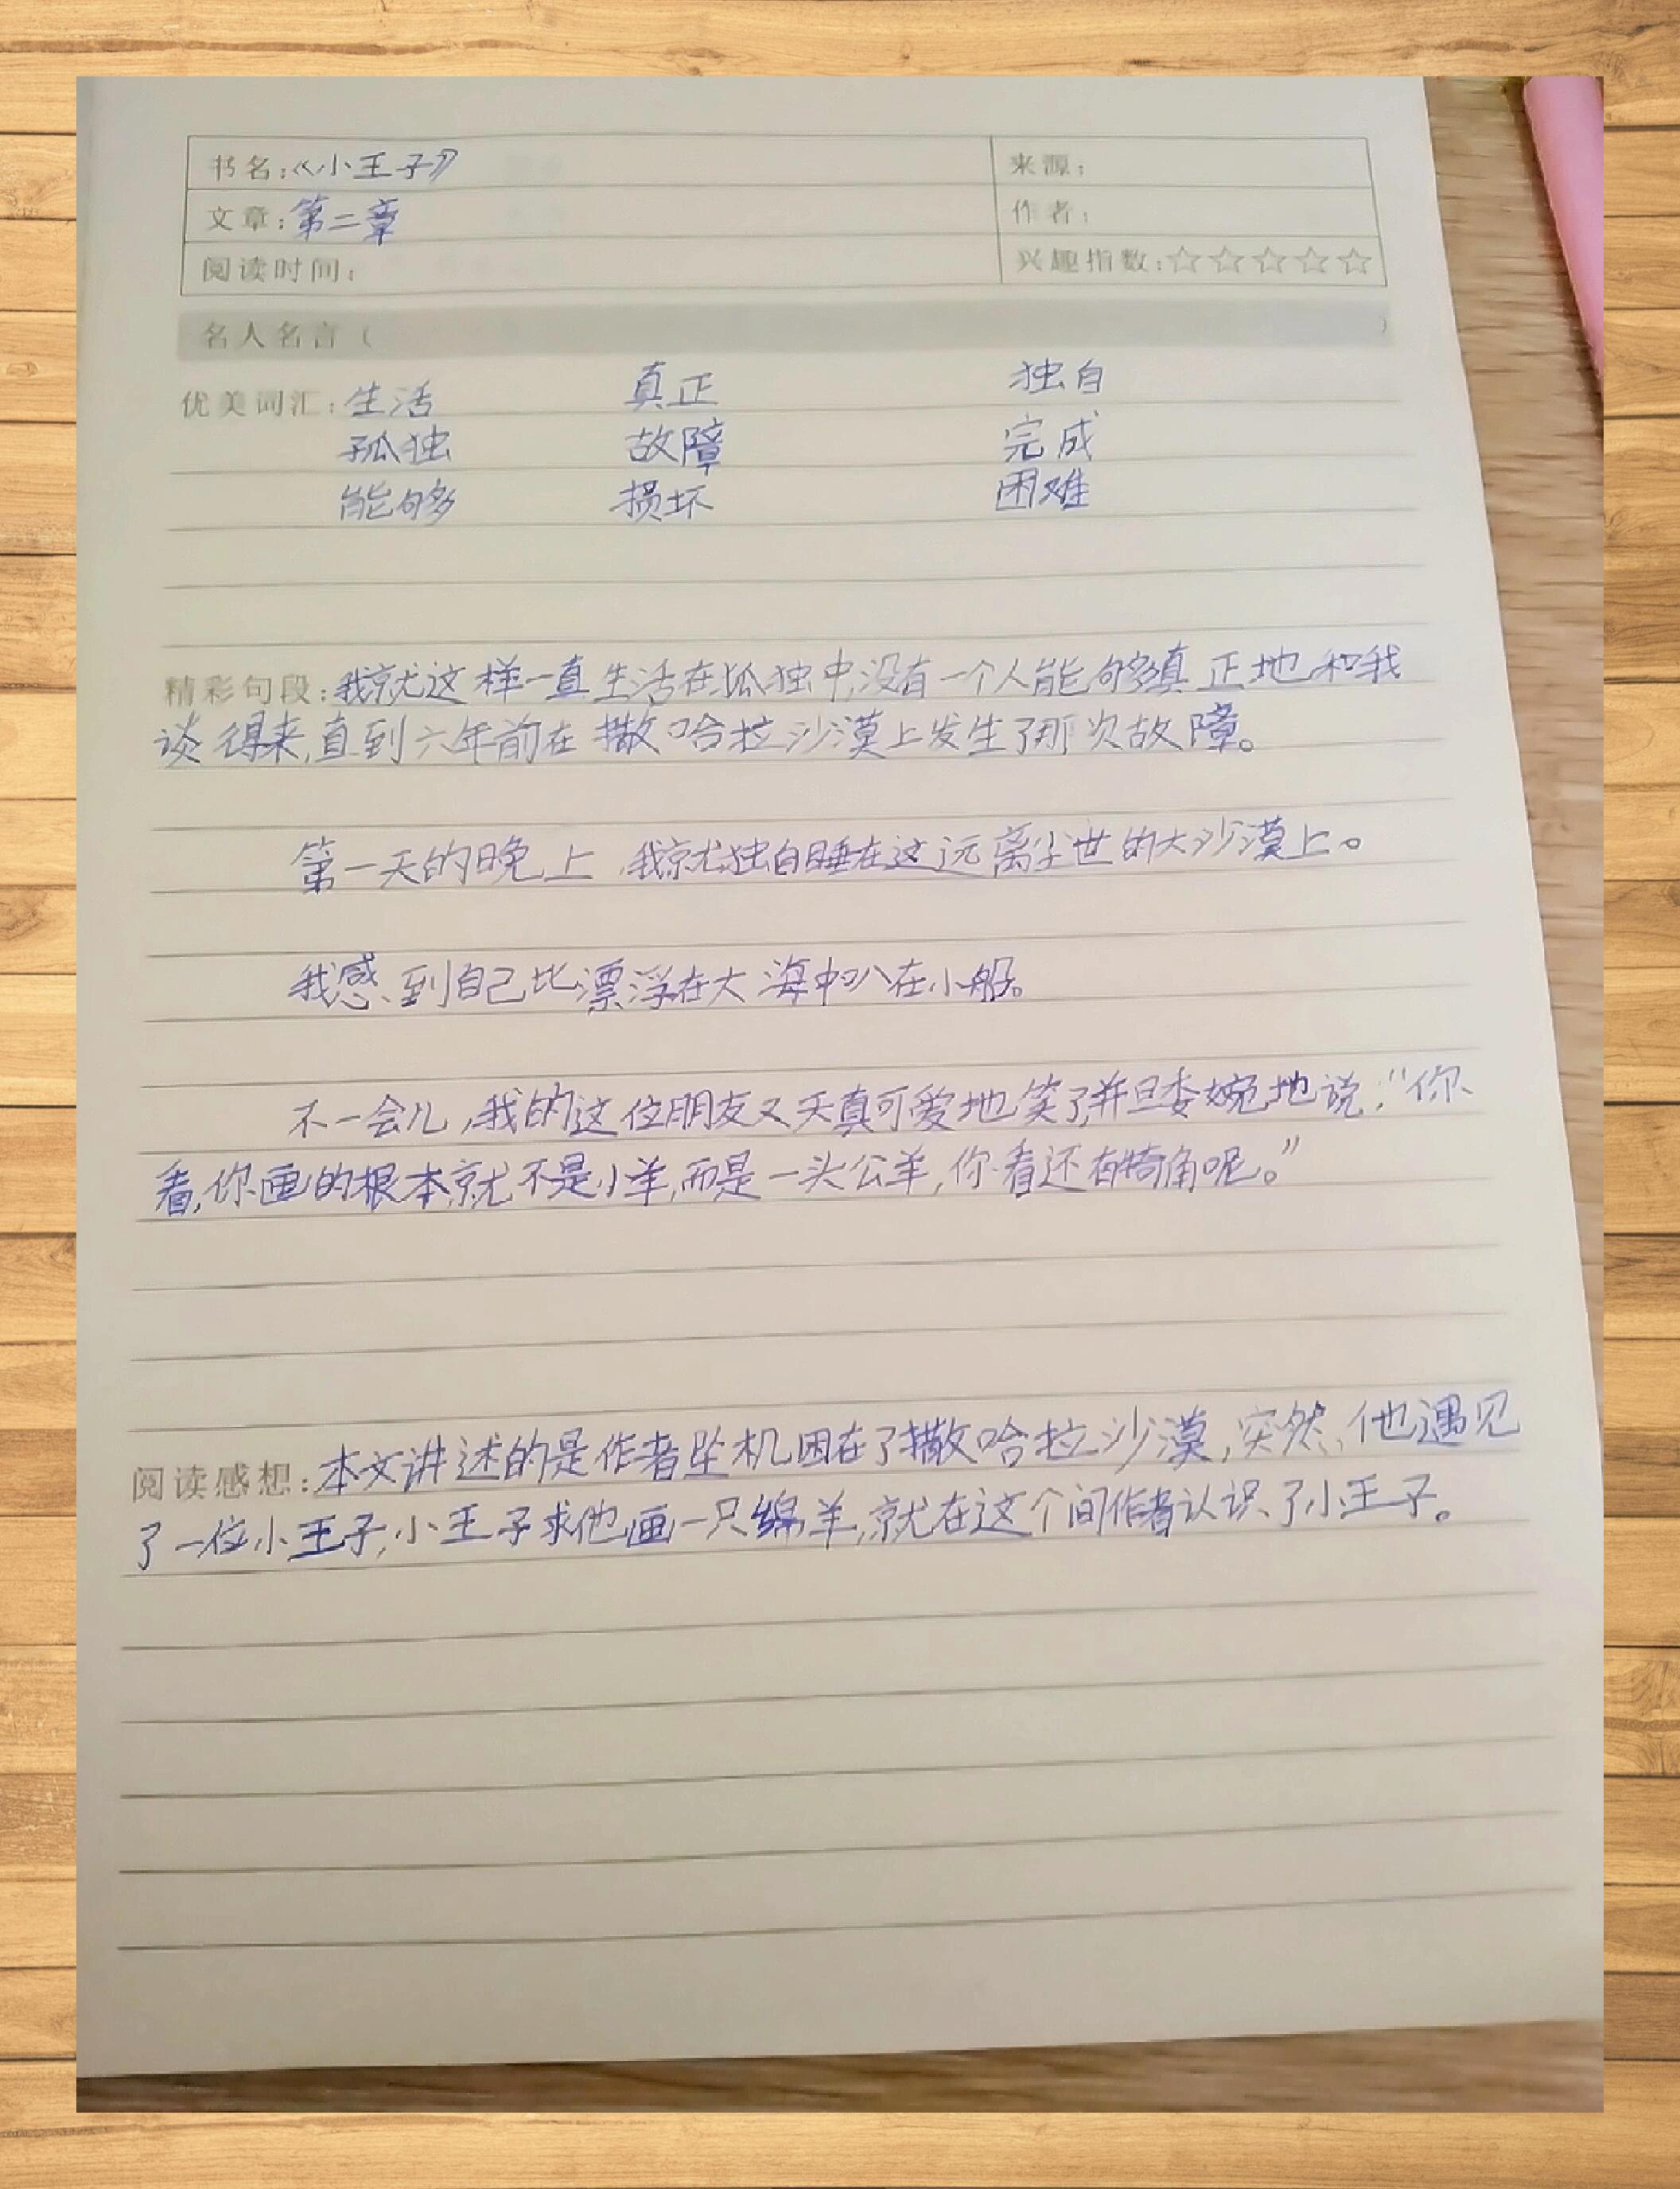 书名:《小王子》
来源:
文章:第二章
作者:
阅读时间:
兴趣指数:☆☆☆☆☆
名人名言( )
优美词汇:生活 真正 独自
孤独 故障 完成
能够 损坏 困难
精彩句段:我就这样一直生活在孤独中,没有一个人能够真正地和我
谈得来,直到六年前在撒哈拉沙漠上发生了那次故障。
第一天的晚上,我就独自睡在这远离尘世的大沙漠上。
我感到自己比漂浮在大海中叭在小船。
不一会儿,我的这位朋友又天真可爱地笑了,并且委婉地说:“你
看,你画的根本就不是小羊,而是一头公羊,你看还有犄角呢。”
阅读感想:本文讲述的是作者坠机困在了撒哈拉沙漠,突然,他遇见
了一位小王子,小王子求他画一只绵羊,就在这个间作者认识了小王子。